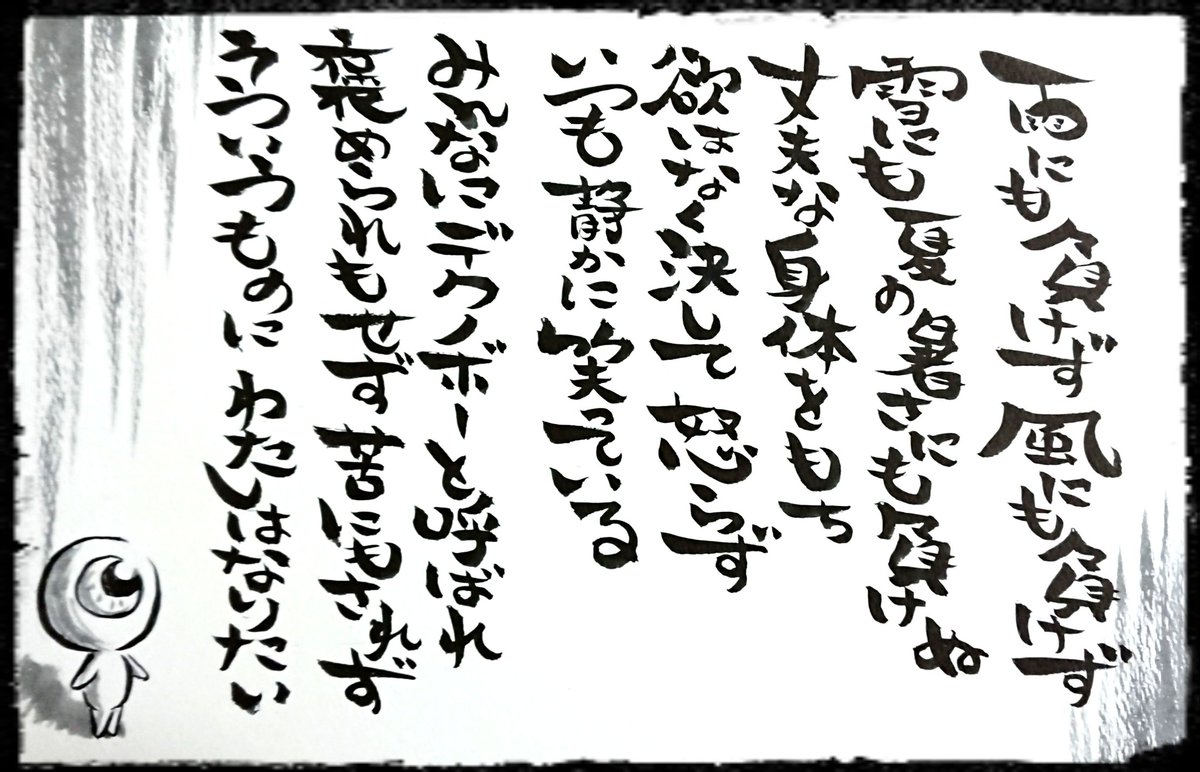 雨にも負けず風にも負けず
雪にも夏の暑さにも負けぬ
丈夫な身体をもち
欲はなく決して怒らず
いつも静かに笑っている
みんなにデクノボーと呼ばれ
褒められもせず苦にもされず
そういうものに わたしはなりたい